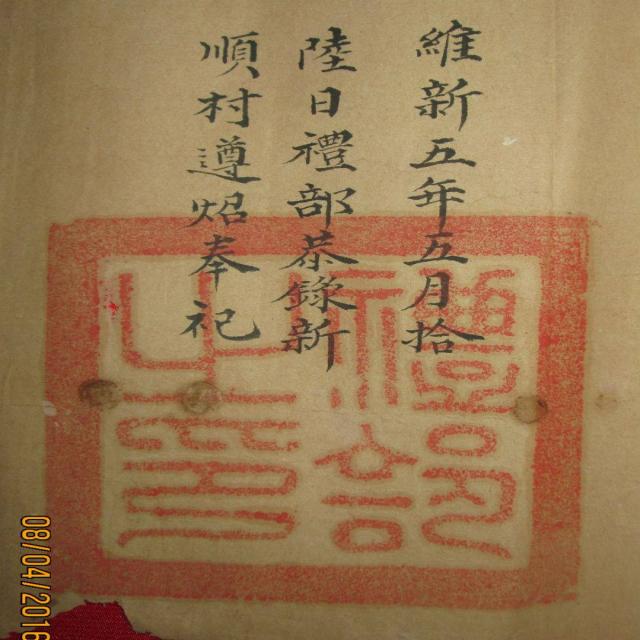 維新五年五月拾
陸日禮部恭錄新
順村遵炤奉祀
禮部
之印
08/04/2016